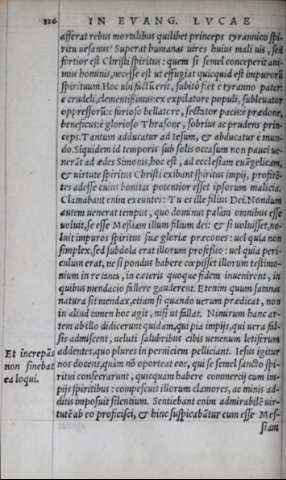 116 IN EVANG. LVCAE
afferat rebus mortalibus quilibet princeps tyrannico spi-
ritu uesanus? Superat humanas uires huius mali uis, sed
fortior est Christi spiritus: quem si semel conceperit ani-
mus hominis, necesse est ut effugiat quicquid est impurorũ
spirituum. Hoc ubi factũ erit, subito fiet e tyranno pater:
e crudeli, clementissimus: ex expilatore populi, subleuator
oppressorũ: e furioso bellatore, sectator pacis: e prædone,
beneficus: e glorioso Thrasone, sobrius ac prudens prin-
ceps. Tantum adducatur ad Iesum, & abducatur e mun-
do. Siquidem id temporis sub solis occasum non pauci ue-
nerãt ad ædes Simonis, hoc est, ad ecclesiam euãgelicam,
& uirtute spiritus Christi exibant spiritus impij, profitē-
tes adesse cuius bonitas potentior esset ipsorum malicia.
Clamabant enim exeuntes: Tu es ille filius Dei. Nondum
autem uenerat tempus, quo dominus palàm omnibus esse
uoluit, se esse Messiam illum filium dei: & si uoluisset, no-
luit impuros spiritus suæ gloriæ præcones: uel quia non
simplex, sed subdola erat illorum professio: uel quia peri-
culum erat, ne si pondus habere cœpisset illorum testimo-
nium in re una, in cæteris quoque fidem inuenirent, in
quibus mendacio fallere gauderent. Etenim quum satanas
natura sit mendax, etiam si quando uerum prædicat, non
in aliud tamen hoc agit, nisi ut fallat. Nimirum hanc ar-
tem ab illo didicerunt quidam, qui pia impijs, qui uera fal-
sis admiscent, ueluti salubribus cibis uenenum letiferum
addentes, quo plures in perniciem pelliciant. Iesus igitur
nos docens, quàm nõ oporteat eos, qui se semel sancto spi-
ritui consecrarunt, quicquam habere commercij cum im-
pijs spiritibus: compescuit illorum clamores, ac minis ad-
ditis imposuit silentium. Sentiebant enim admirabilē uir-
tutē ab eo proficisci, & hinc suspicabãtur eum esse Mes-
siam
Et increpãs
non sinebat
ea loqui.